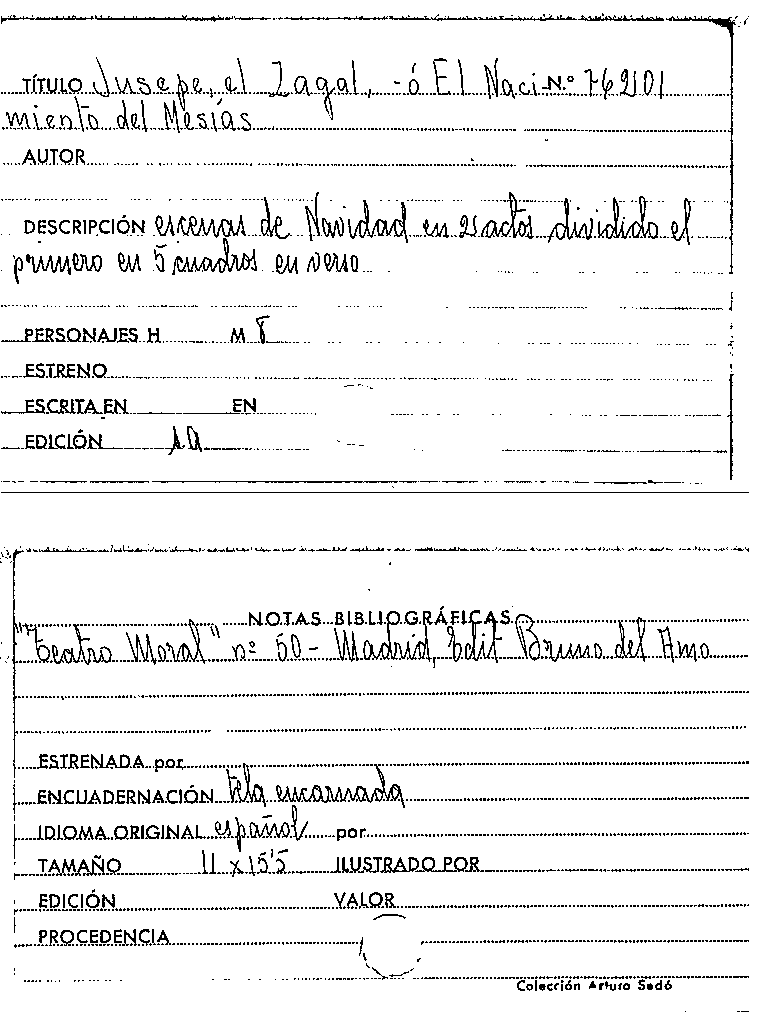 TÍTULO Jusepe, el Zagal, -ó El Naci- N.º 76201
miento del Mesías
AUTOR
DESCRIPCIÓN escenas de Navidad en 2 actos dividido el
primero en 5 cuadros en verso
PERSONAJES H M 8
ESTRENO
ESCRITA EN EN
EDICIÓN 1a
NOTAS BIBLIOGRÁFICAS
"Teatro Moral" nº 50 - Madrid, Edit Bruno del Amo
ESTRENADA por
ENCUADERNACIÓN tela encarnada
IDIOMA ORIGINAL español por
TAMAÑO 11 x 15'5 ILUSTRADO POR
EDICIÓN VALOR
PROCEDENCIA
Colección Arturo Sedó